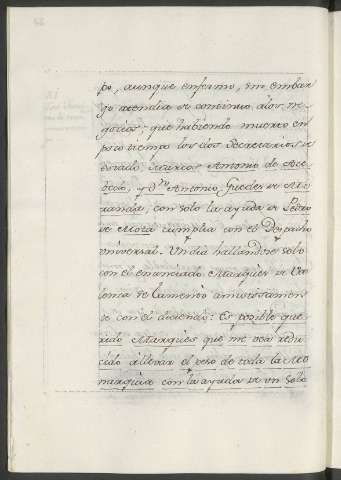 po, aunque enfermo, sin embar
go atendia de continuo a los ne
gocios: que habiendo muerto en
poco tiempo los dos Secretarios de
Estado Marco Antonio de Aze
bedo, y Dn. Antonio Guedes de Mo
, con solo la ayuda de Pedro
de Mota cumplia con el Despacho
universal. Un dia hallandose solo
con el enunciado Marqués de
se lamentó amorosamen
te con el diciendo: Es posible que
rido Marqués que me vea redu
cido á llevar el peso de toda la Mo
narquia con la ayuda de un solo